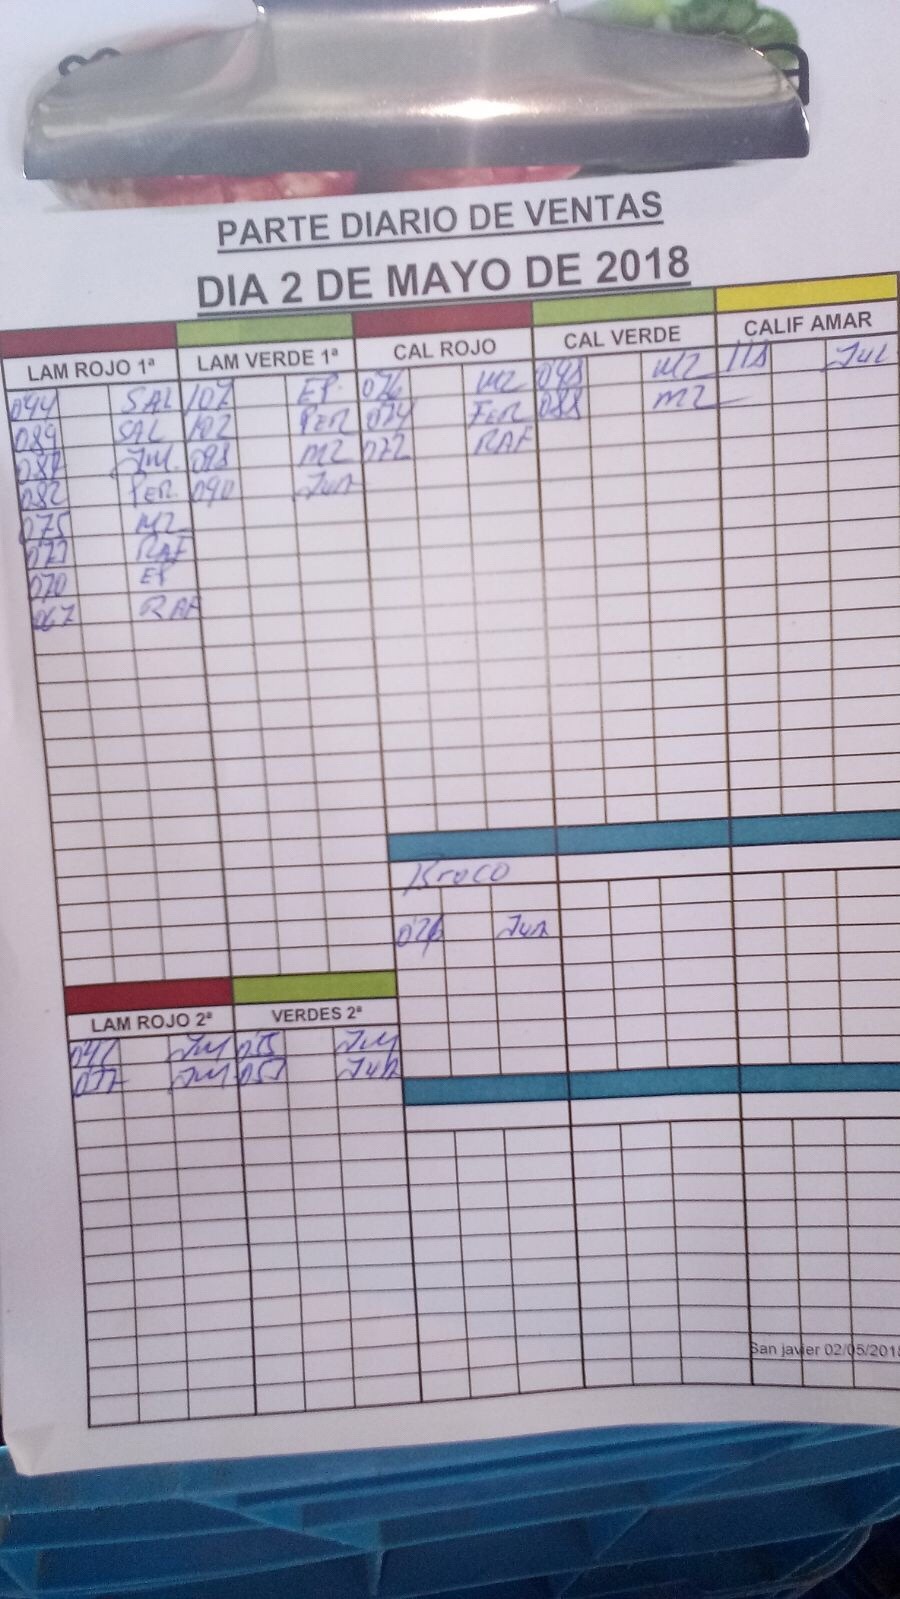 PARTE DIARIO DE VENTAS
DIA 2 DE MAYO DE 2018
LAM ROJO 1ª LAM VERDE 1ª CAL ROJO CAL VERDE CALIF AMAR
094 SAL 107 EP. 076 MZ 098 MZ 118 Jul
089 SAL 102 PER 074 FER 088 MZ
087 JM. 098 MZ 072 RAF
082 PER 090 Jun
075 MZ
073 RAF
070 EP
067 RAF
Broco
026 Jun
LAM ROJO 2ª VERDES 2ª
JM JM
077 JM 057 Jun
San javier 02/05/2018